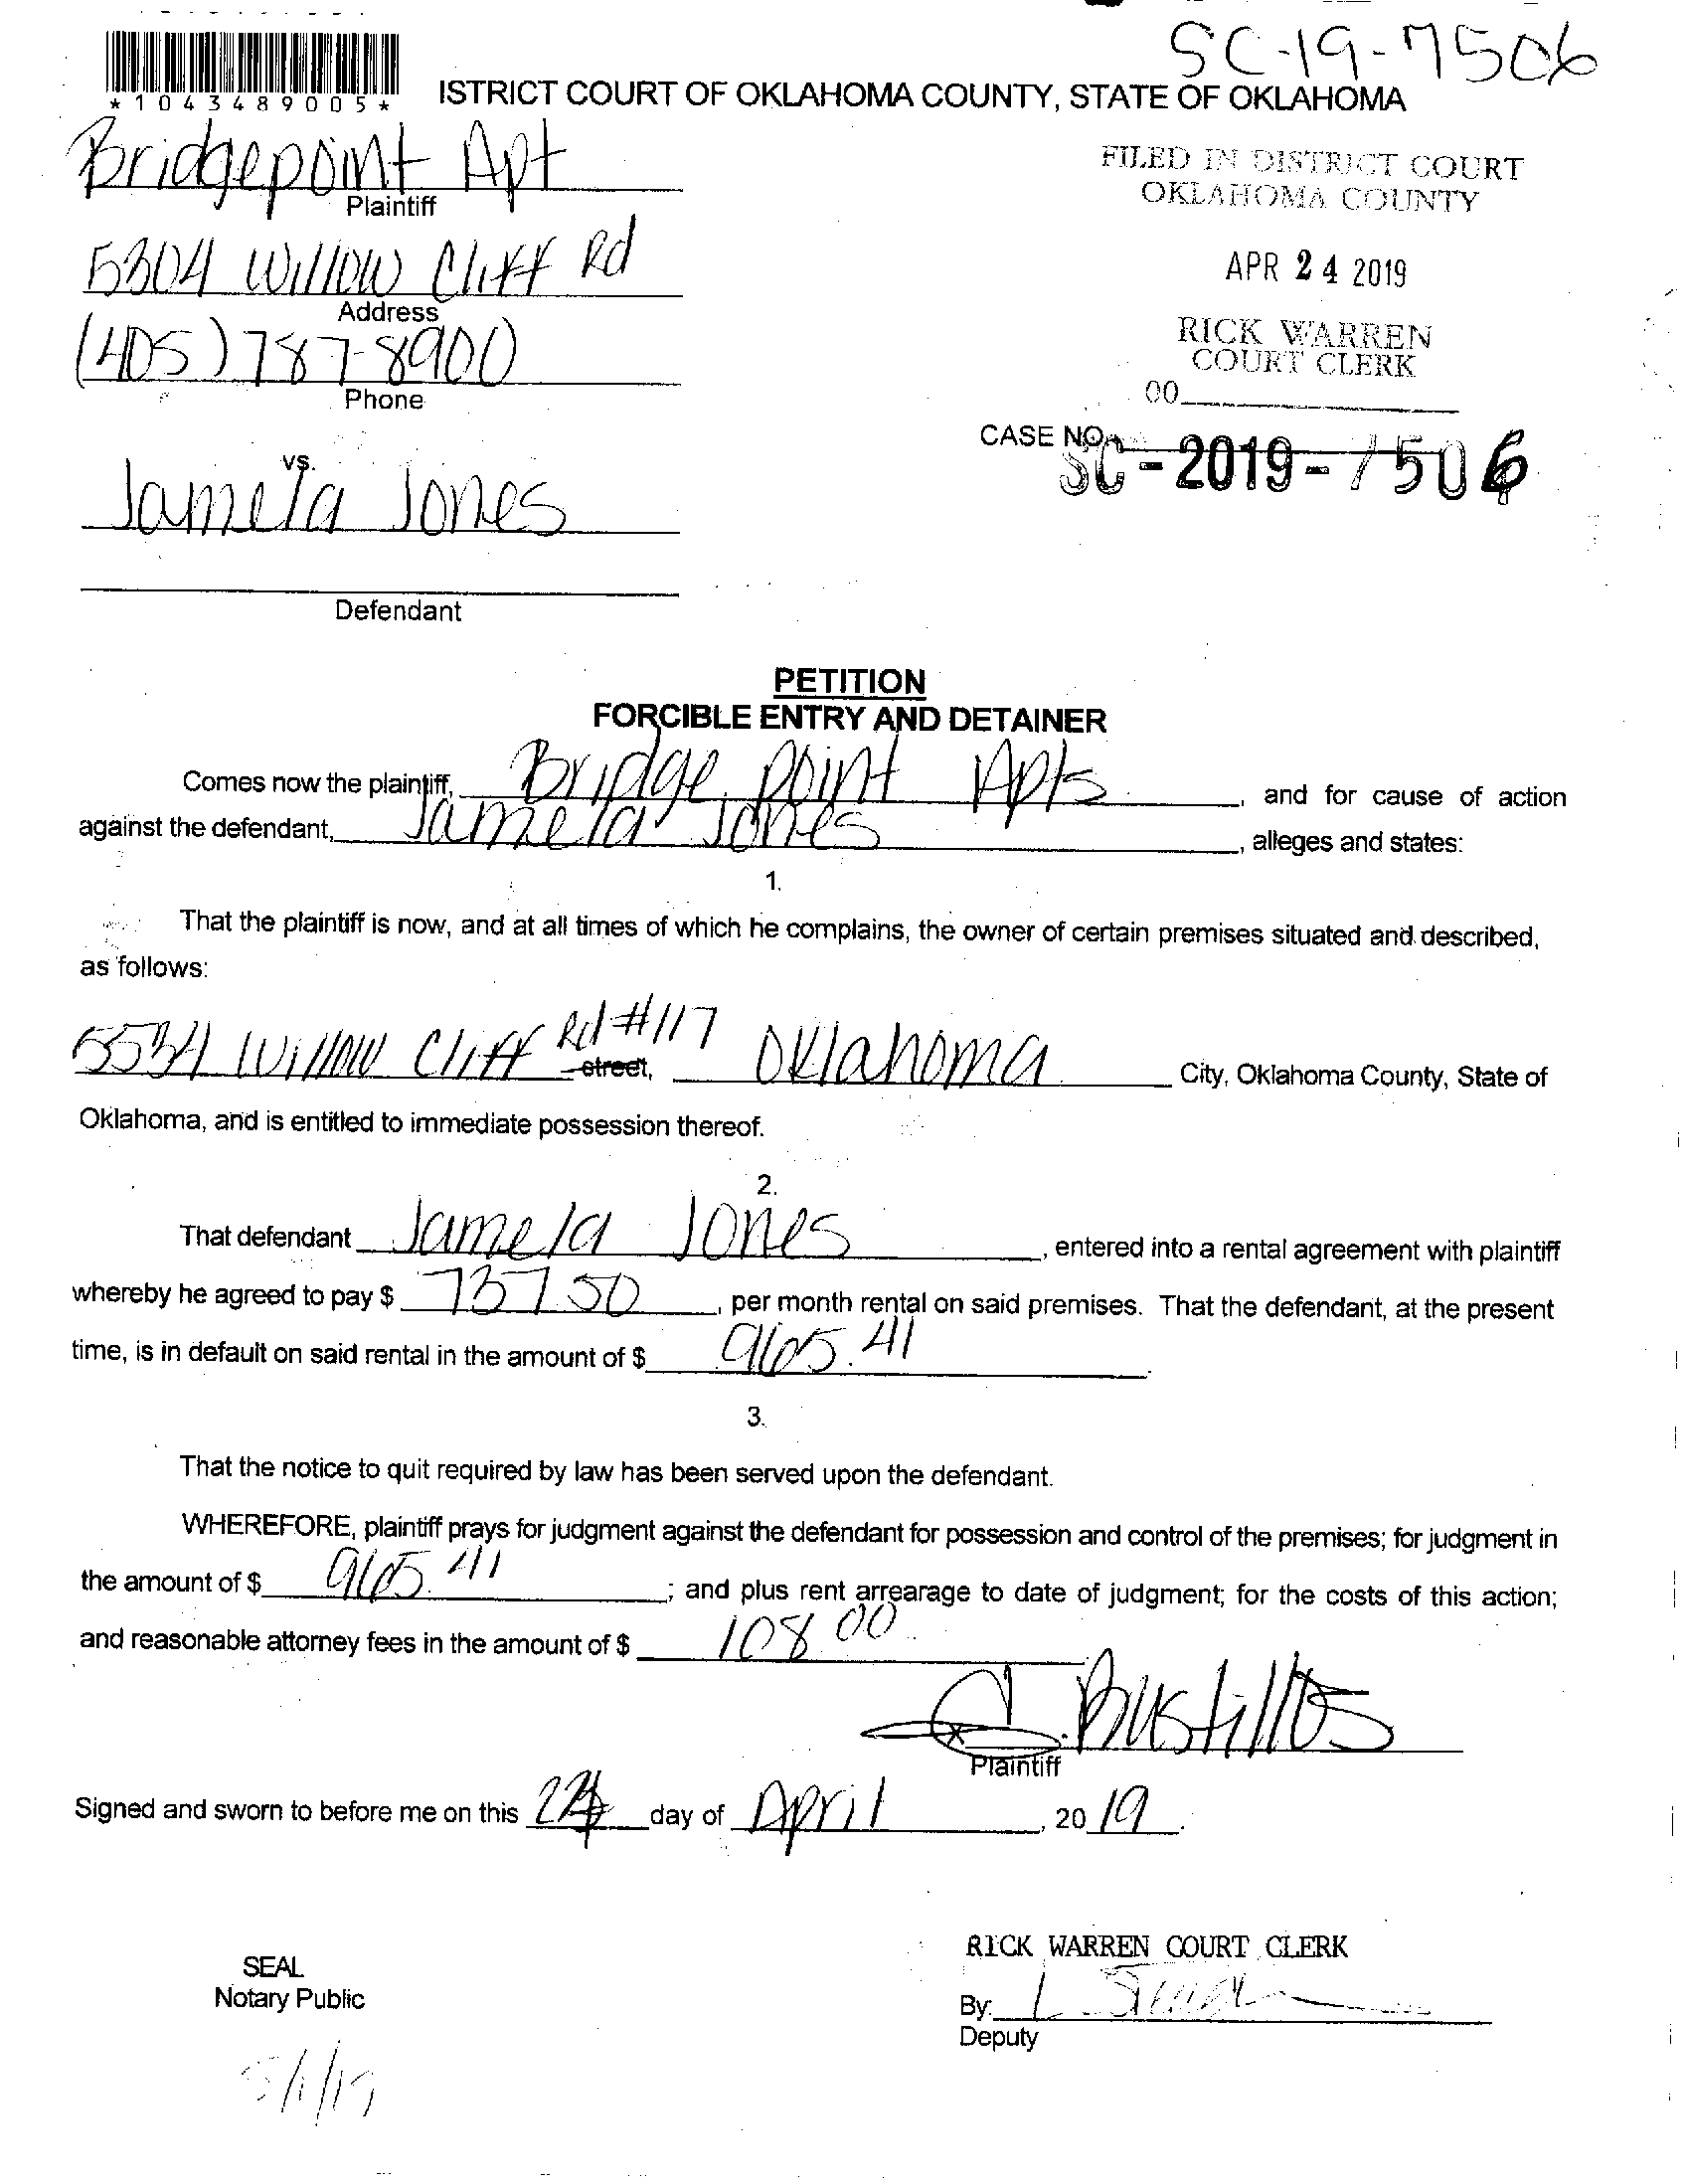 SC-19-7506
*1043489005*
ISTRICT COURT OF OKLAHOMA COUNTY, STATE OF OKLAHOMA
Bridgepoint Apt
Plaintiff
FILED IN DISTRICT COURT
OKLAHOMA COUNTY
5304 Willow Cliff Rd
Address
APR 24 2019
(405) 787-8900
Phone
RICK WARREN
COURT CLERK
00
CASE NO.
SC-2019-7506
vs.
Jamela Jones
Defendant
PETITION
FORCIBLE ENTRY AND DETAINER
Comes now the plaintiff, Bridge point Apts, and for cause of action
against the defendant, Jamela Jones, alleges and states:
1.
That the plaintiff is now, and at all times of which he complains, the owner of certain premises situated and described,
as follows:
5534 Willow Cliff Rd #117 street, Oklahoma City, Oklahoma County, State of
Oklahoma, and is entitled to immediate possession thereof.
2.
That defendant Jamela Jones, entered into a rental agreement with plaintiff
whereby he agreed to pay $ 737.50, per month rental on said premises. That the defendant, at the present
time, is in default on said rental in the amount of $ 965.41.
3.
That the notice to quit required by law has been served upon the defendant.
WHEREFORE, plaintiff prays for judgment against the defendant for possession and control of the premises; for judgment in
the amount of $ 965.41; and plus rent arrearage to date of judgment; for the costs of this action;
and reasonable attorney fees in the amount of $ 108.00
Bustillos
Plaintiff
Signed and sworn to before me on this 24 day of April, 2019.
RICK WARREN COURT CLERK
SEAL
Notary Public
By:
Deputy
5/1/19